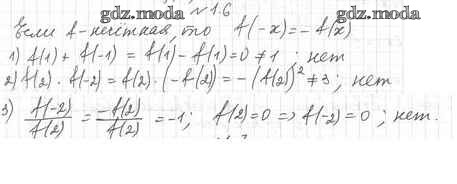 gdz.moda
gdz.moda
№1.6
Если f-нечётная, то f(-x)=-f(x)
1) f(1)+f(-1)=f(1)-f(1)=0≠1; нет
2) f(2)·f(-2)=f(2)·(-f(2))=-(f(2))²≠3; нет
3) f(-2)/f(2)=-f(2)/f(2)=-1; f(2)=0=>f(-2)=0; нет.